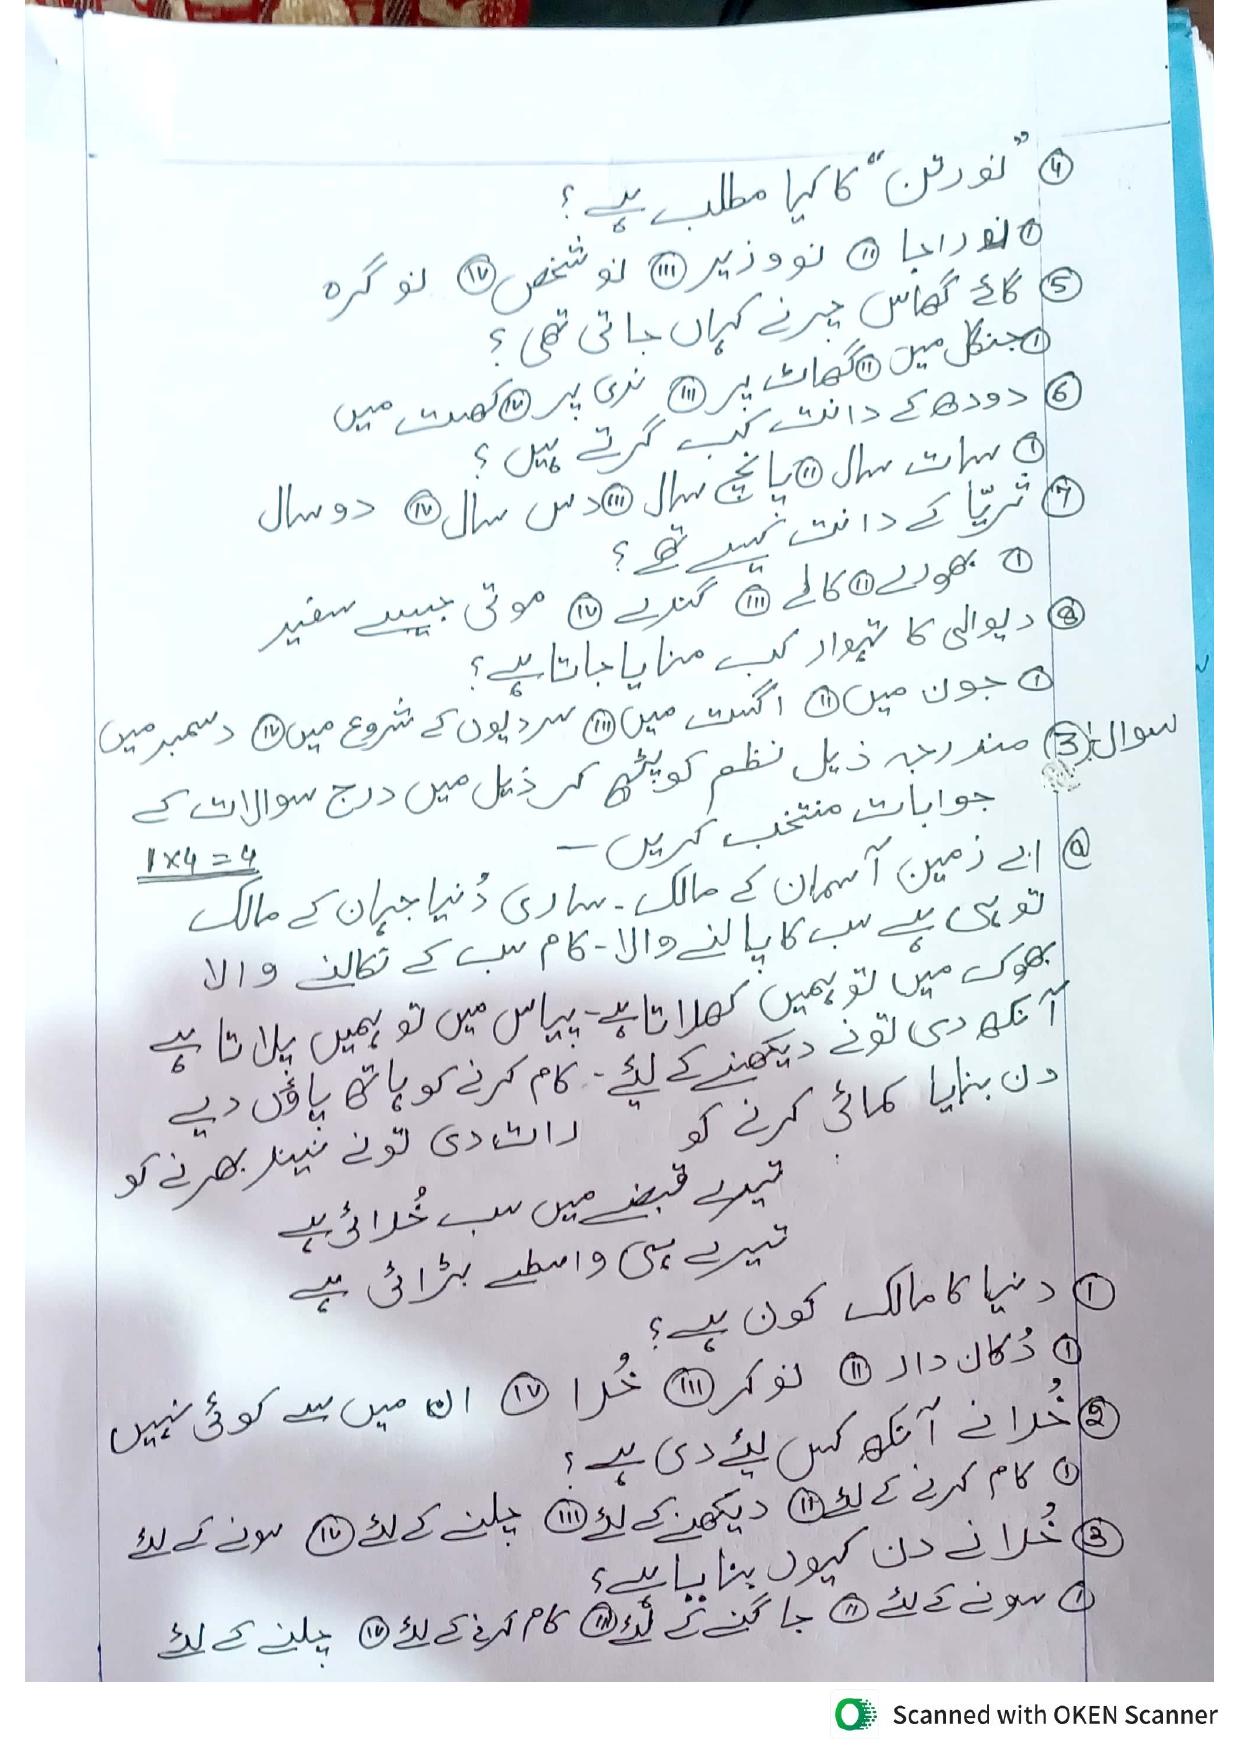 ④ ”نورتن“ کا کیا مطلب ہے؟
① نو راجا ⑪ نو وزیر ⑪ا نو شخص ⑰ نو گرہ
⑤ گائے گھاس چرنے کہاں جاتی تھی؟
① جنگل میں ⑪ گھاٹ پر ⑪ا ندی پر ⑰ کھیت میں
⑥ دودھ کے دانت کب گرتے ہیں؟
① سات سال ⑪ پانچ سال ⑪ا دس سال ⑰ دو سال
⑦ ثریّا کے دانت کیسے تھے؟
① بھورے ⑪ کالے ⑪ا گندے ⑰ موتی جیسے سفید
⑧ دیوالی کا تہوار کب منایا جاتا ہے؟
① جون میں ⑪ اگست میں ⑪ا سردیوں کے شروع میں ⑰ دسمبر میں
سوال: ③ مندرجہ ذیل نظم کو پڑھ کر ذیل میں درج سوالات کے
جوابات منتخب کریں –
1×4=4
ⓐ اے زمین آسمان کے مالک - ساری دُنیا جہان کے مالک
تو ہی ہے سب کا پالنے والا - کام سب کے نکالنے والا
بھوک میں تو ہمیں کھلاتا ہے - پیاس میں تو ہمیں پلاتا ہے
آنکھ دی تونے دیکھنے کے لئے - کام کرنے کو ہاتھ پاؤں دیے
دن بنایا کمائی کرنے کو رات دی تونے نیند بھرنے کو
تیرے قبضے میں سب خُدائی ہے
تیرے ہی واسطے بڑائی ہے
① دنیا کا مالک کون ہے؟
① دُکان دار ⑪ نوکر ⑪ا خُدا ⑰ ان میں سے کوئی نہیں
② خُدا نے آنکھ کس لیئے دی ہے؟
① کام کرنے کے لئے ⑪ دیکھنے کے لئے ⑪ا چلنے کے لئے ⑰ سونے کے لئے
③ خُدا نے دن کیوں بنایا ہے؟
① سونے کے لئے ⑪ جاگنے کے لئے ⑪ا کام کرنے کے لئے ⑰ چلنے کے لئے
Scanned with OKEN Scanner